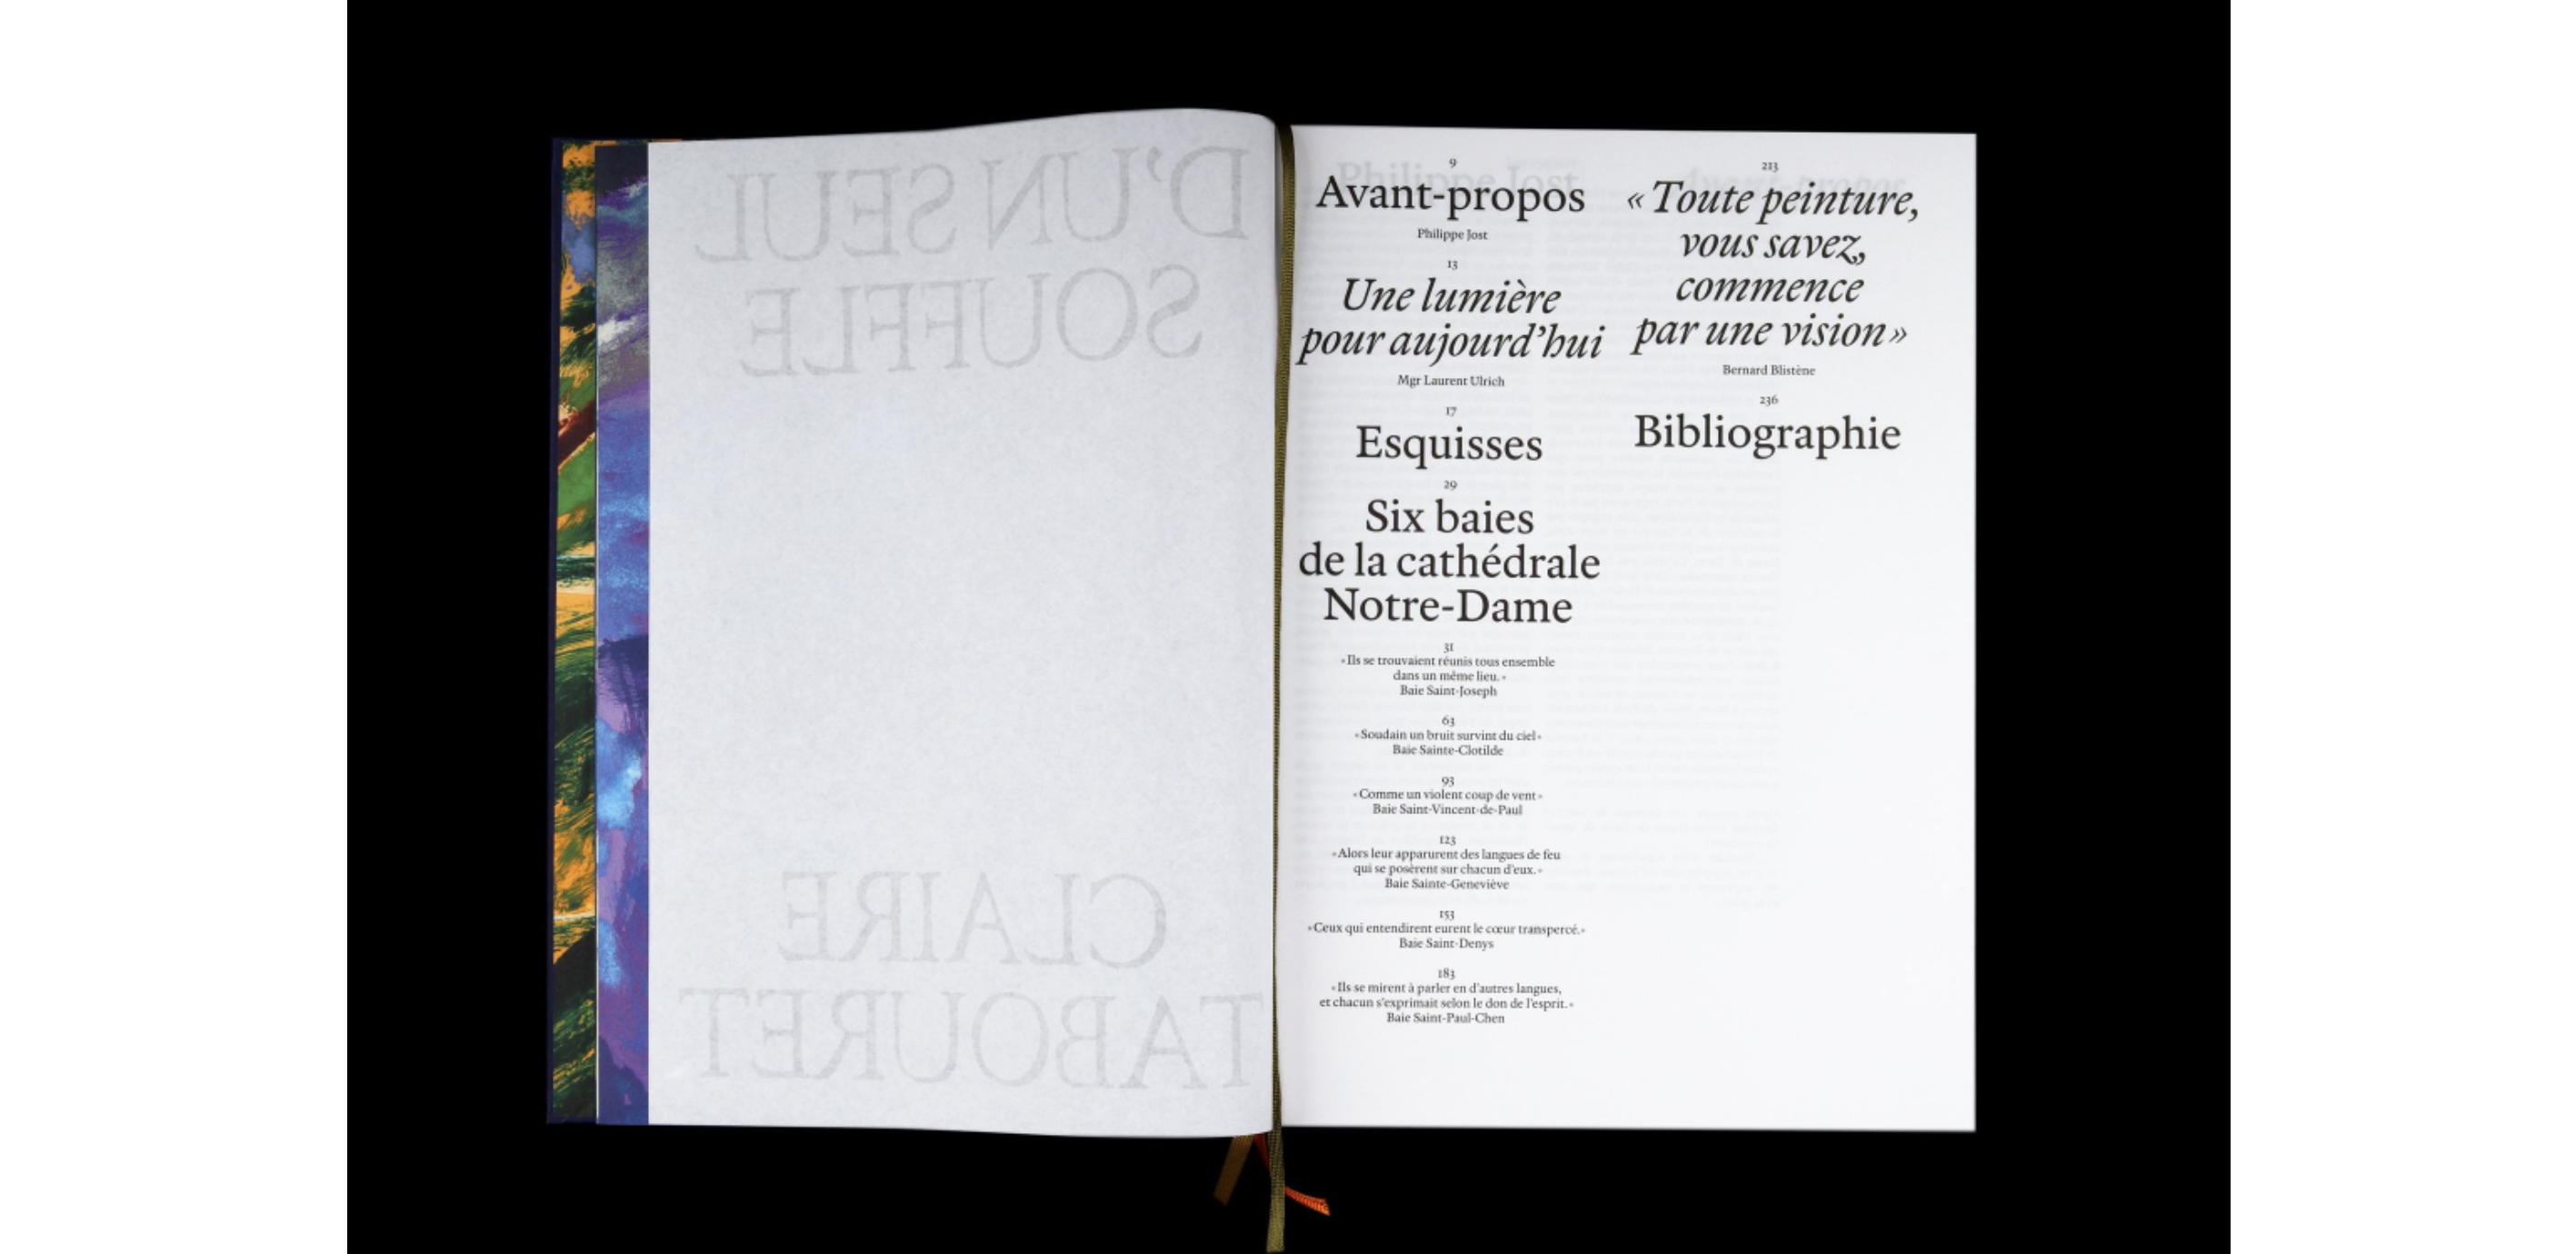 D'UN SEUL
SOUFFLE
CLAIRE
TABOURET
9
Avant-propos
Philippe Jost
13
Une lumière
pour aujourd'hui
Mgr Laurent Ulrich
17
Esquisses
29
Six baies
de la cathédrale
Notre-Dame
31
«Ils se trouvaient réunis tous ensemble
dans un même lieu.»
Baie Saint-Joseph
63
«Soudain un bruit survint du ciel»
Baie Sainte-Clotilde
93
«Comme un violent coup de vent»
Baie Saint-Vincent-de-Paul
123
«Alors leur apparurent des langues de feu
qui se posèrent sur chacun d'eux.»
Baie Sainte-Geneviève
153
«Ceux qui entendirent eurent le cœur transpercé.»
Baie Saint-Denys
183
«Ils se mirent à parler en d'autres langues,
et chacun s'exprimait selon le don de l'esprit.»
Baie Saint-Paul-Chen
213
« Toute peinture,
vous savez,
commence
par une vision »
Bernard Blistène
236
Bibliographie